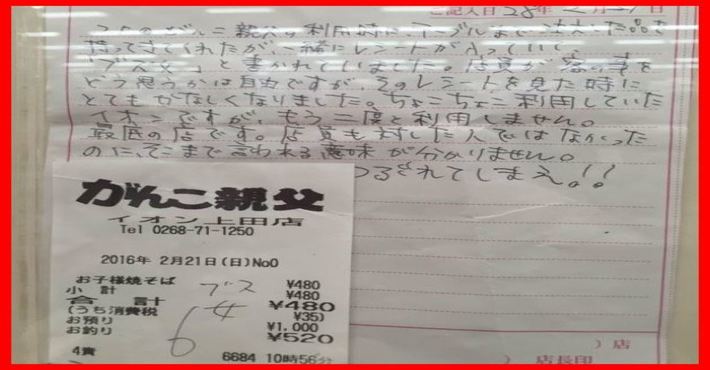 ご記入日 28年 2月21日
フードのがんこ親父を利用時に、テーブルまで注文した品を
持ってきてくれたが、一緒にレシートが入っていて、
「ブス女」と書かれていました。店員が客の事を
どう思うかは自由ですが、そのレシートを見た時に
とてもかなしくなりました。ちょこちょこ利用していた
イオンですが、もう二度と利用しません。
最底の店です。店員も対した人ではなかった
のに、そこまで言われる意味が分かりません。
つぶれてしまえ!!
がんこ親父
イオン上田店
Tel 0268-71-1250
2016年 2月21日(日)No0
お子様焼そば ¥480
小 計 ¥480
合 計 ¥480
(うち消費税 ¥35)
お預り ¥1,000
お釣り ¥520
ブス
女
6
4責 6684 10時56分
)店
) 店長印